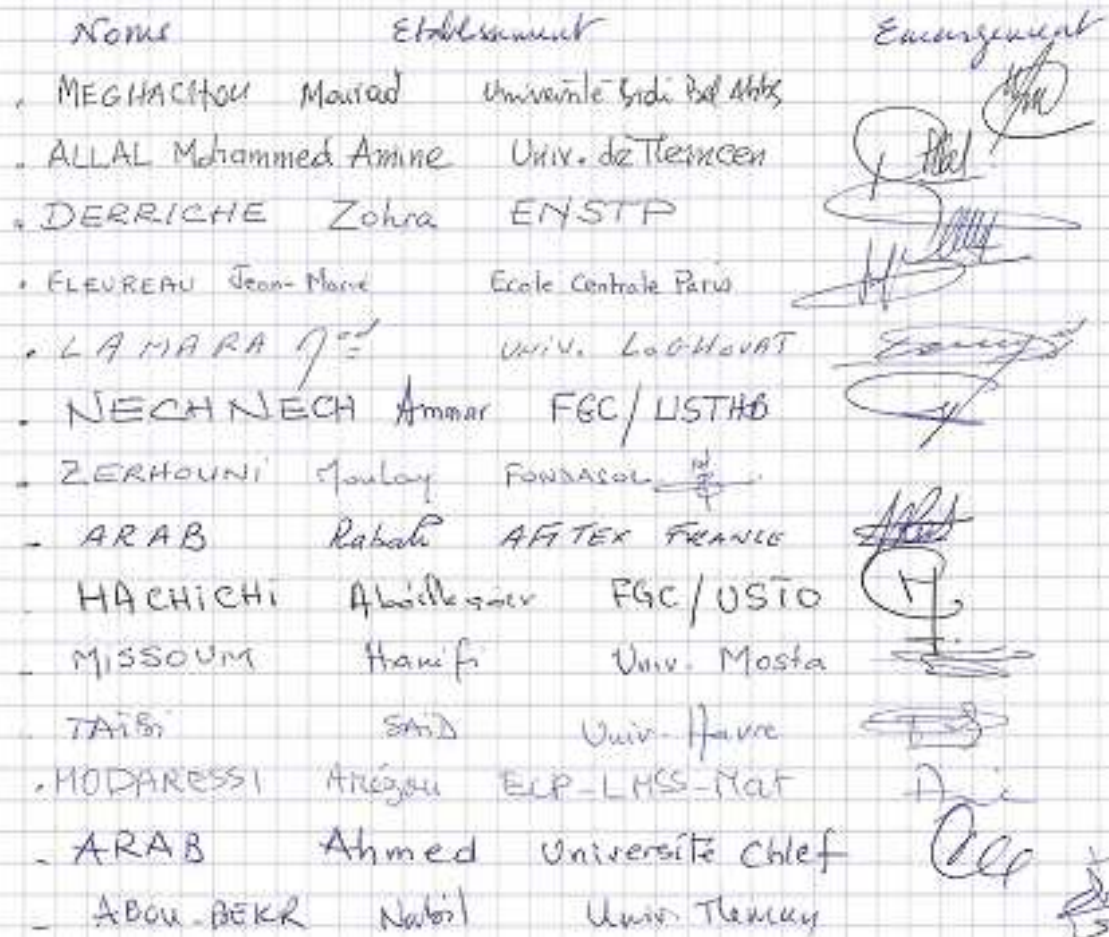 Noms Etablissement Emargement
. MEGHACHOU Mourad Université Sidi Bel Abbs
. ALLAL Mohammed Amine Univ. de Tlemcen
. DERRICHE Zohra ENSTP
. FLEUREAU Jean-Marie Ecole Centrale Paris
. LAMARA Univ. LAGHOUAT
. NECHNECH Ammar FGC/USTHB
. ZERHOUNI Moulay FONDASOL
- ARAB Rabah AFITEX FRANCE
- HACHiCHi FGC/USTO
- MISSOUM Hanifi Univ. Mosta
. TAïBi SAïD Univ-Havre
. MODARESSI Arézou ECP-LMSS-Mat
- ARAB Ahmed Université Chlef
- ABOU-BEKR Nabil Univ. Tlemcen